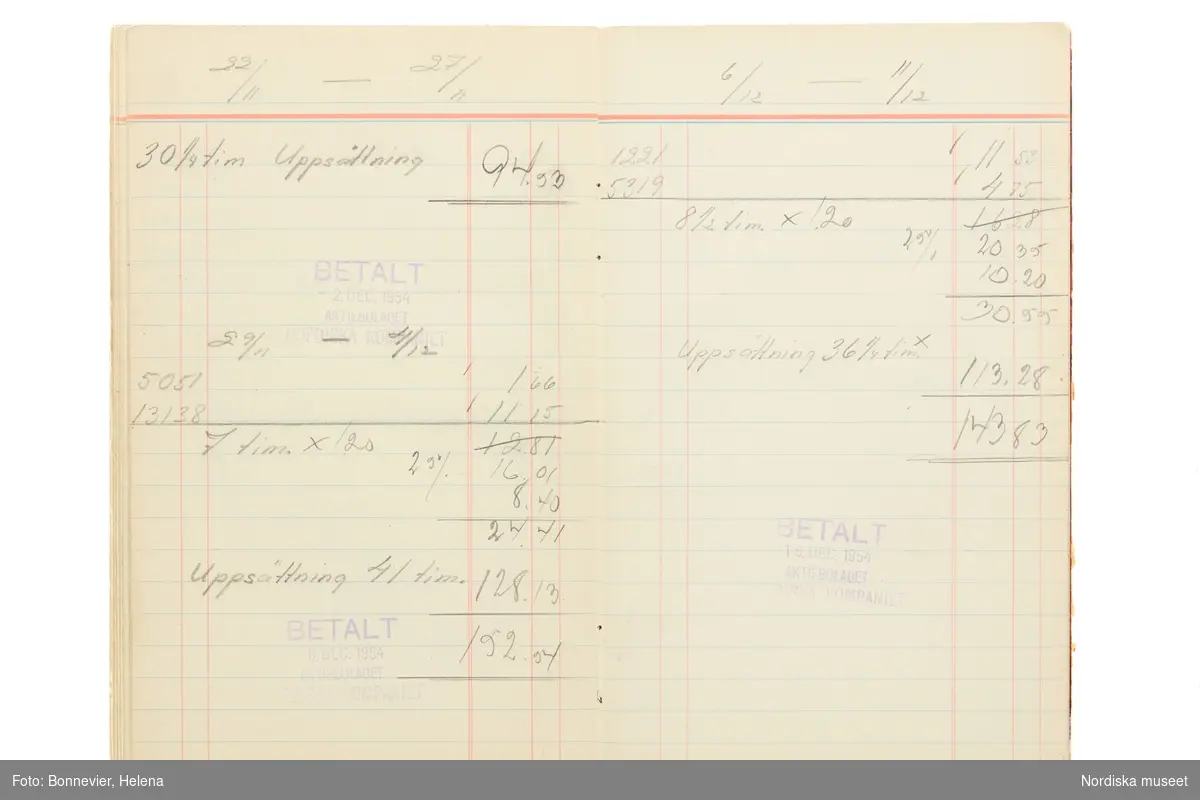 22/11 — 27/11
30 1/4 tim Uppsättning 94.53
BETALT
- 2. DEC. 1954
AKTIEBOLAGET
NORDISKA KOMPANIET
29/11 — 4/12
5051 1 1 66
13138 1 11 15
7 tim. x 1.20 12.81
25% 16.01
8.40
24.41
Uppsättning 41 tim. 128.13
BETALT
DEC. 1954
AKTIEBOLAGET
KOMPANIET
152.54
6/12 — 11/12
1221 1 11 53
5319 1 4 75
8 1/2 tim. x 1.20 16 28
25% 20 35
10.20
30.55
Uppsättning 36 1/4 tim. x
113.28
143 83
BETALT
DEC. 1954
AKTIEBOLAGET
KOMPANIET
Foto: Bonnevier, Helena
Nordiska museet